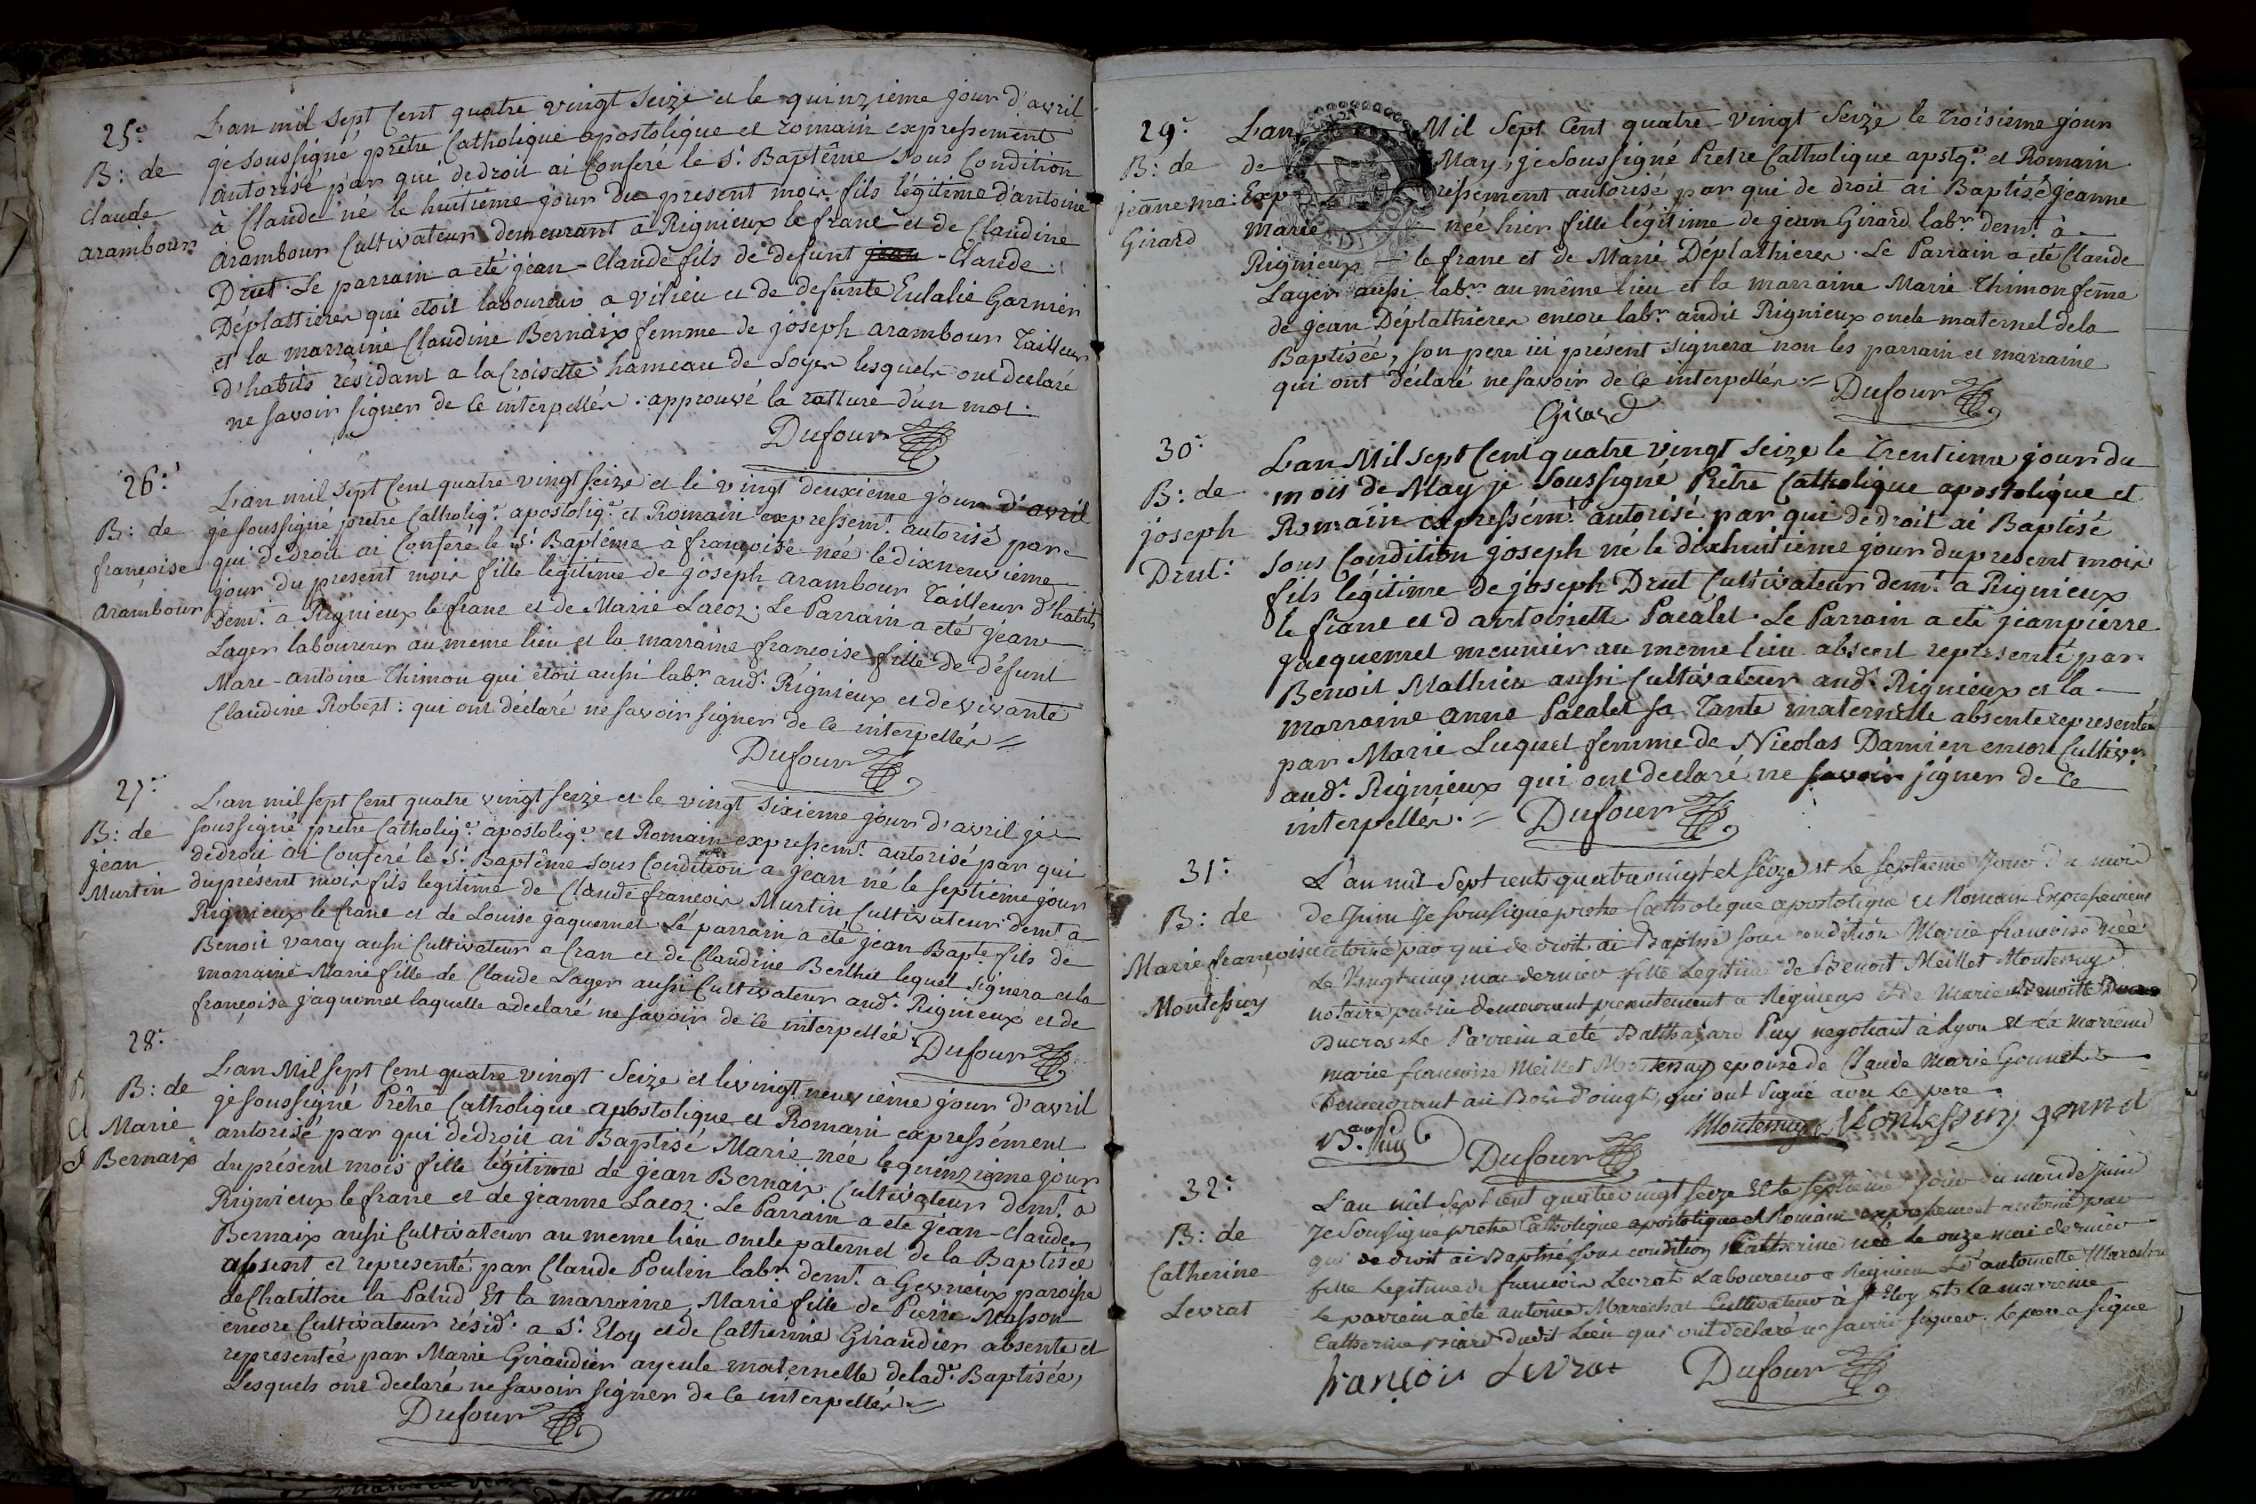 25.e
B: de
Claude
arambour
L'an mil sept Cent quatre vingt seize et le quinzieme jour d'avril
je soussigné prêtre Catholique apostolique et romain expressement
autorisé par qui de droit ai Conferé le St. Baptême sous Condition
à Claude né le huitieme jour du present mois fils légitime d'antoine
arambour Cultivateur demeurant a Rignieux le franc et de Claudine
Drut. Le parrain a eté jean-Claude fils de defunt jean-Claude
Déplattieres qui etoit laboureur a vilieu et de defunte Eulalie Garnier
et la marraine Claudine Bernaix femme de joseph arambour Tailleur
d'habits résidant a la Croisette hameau de Loyes lesquels ont declaré
ne savoir signer de ce interpellés. approuvé la rature d'un mot.
Dufour
26.e
B: de
françoise
arambour
L'an mil sept Cent quatre vingt seize et le vingt deuxieme jour d'avril
je soussigné prêtre Catholiq.e apostoliq.e et Romain expressem.t autorisé par
qui de droit ai Conferé le St. Baptême à françoise née le dixneuvieme
jour du present mois fille légitime de joseph arambour Tailleur d'habits
dem.t a Rignieux le franc et de Marie Lacoz. Le Parrain a eté jean
Lager laboureur au meme lieu et la marraine françoise fille de défunt
Marc-antoine Thimon qui étoit aussi lab.r aud.t Rignieux et de vivante
Claudine Robert: qui ont déclaré ne savoir signer de ce interpellés =
Dufour
27.e
B: de
jean
Murtin
L'an mil sept Cent quatre vingt seize et le vingt sixieme jour d'avril je
soussigné prêtre Catholiq.e apostoliq.e et Romain expressem.t autorisé par qui
de droit ai Conferé le St. Baptême sous Condition a jean né le septieme jour
du présent mois fils legitime de Claude françois Murtin Cultivateur dem.t a
Rignieux le franc et de Louise jaquemet. Le parrain a eté jean Bapte fils de
Benoit varay aussi Cultivateur a Cran et de Claudine Berthet lequel signera et la
marraine Marie fille de Claude Lager aussi Cultivateur aud.t Rignieux et de
françoise jaquemet laquelle a declaré ne savoir de ce interpellée.
Dufour
28.e
B: de
Marie
Bernaix
L'an Mil sept Cent quatre vingt Seize et le vingt neuvième jour d'avril
je soussigné Prêtre Catholique apostolique et Romain expressément
autorisé par qui de droit ai Baptisé Marie née le quinzieme jour
du présent mois fille légitime de jean Bernaix Cultivateur dem.t a
Rignieux le franc et de jeanne Lacoz. Le Parrain a eté jean-Claude
Bernaix aussi Cultivateur au meme lieu oncle paternel de la Baptisée
absent et representé par Claude Poulin lab.r dem.t a Gevrieux paroisse
de Chatillon la Palud Et la marraine Marie fille de Pierre Masson
encore Cultivateur résid.t a St. Eloy et de Catherine Giraudier absente et
representée par Marie Giraudier ayeule maternelle de lad.e Baptisée,
Lesquels ont declaré ne savoir signer de ce interpellés =
Dufour
29.e
B: de
jeanne ma:
Girard
L'an Mil Sept Cent quatre-vingt Seize le troisieme jour
de May, je soussigné Prêtre Catholique apstq.e et Romain
Expressement autorisé par qui de droit ai Baptisé jeanne
marie née hier fille légitime de jean Girard lab.r dem.t à
Rignieux le franc et de Marie Déplathieres. Le Parrain a eté Claude
Lager aussi lab.r au même lieu et la marraine Marie Thimon feme
de jean Déplathieres encore lab.r audit Rignieux oncle maternel de la
Baptisée, son pere ici présent signera non les parrain et marraine
qui ont déclaré ne savoir de ce interpellés =
Dufour
Girard
30.e
B: de
joseph
Drut:
L'an Mil sept Cent quatre vingt Seize le trentieme jour du
mois de May je soussigné Prêtre Catholique apostolique et
Romain expressém.t autorisé par qui de droit ai Baptisé
sous Condition joseph né le dixhuitieme jour du present mois
fils légitime de joseph Drut Cultivateur dem.t a Rignieux
le franc et d'antoinette Pacalet. Le Parrain a eté jean pierre
jacquemet meunier au meme lieu absent representé par
Benoit Mathieu aussi Cultivateur aud.t Rignieux et la
marraine anne Pacalet sa Tante maternelle absente representée
par Marie Luquet femme de Nicolas Damien encore Cultiv.r
aud.t Rignieux qui ont declaré ne savoir signer de ce
interpellés. = Dufour
31.e
B: de
Marie françoise
Montessuy
L'an mil Sept cents quatre vingt et séize et Le Septieme Jour du mois
de Juin Je soussigné pretre Catholique apostolique et Romain Expressement
autorisé par qui de droit ai Baptisé sous condition Marie francoise née
Le Vingt cinq mai dernier fille Legitime de Benoit Meillet Montessuy
notaire public demeurant presentement a Rigneux et de marie
Ducros Le Parrein a eté Balthazard Puy negotiant à Lyon et La marreine
marie francoise Meillet Montessuy epouse de Claude Marie Gonnet
Demeurant au Bois d'oingt, qui ont signé avec Le pere
B.ard Puy
Montessuy Montessuy gonnet
Dufour
32.e
B: de
Catherine
Levrat
L'an mil Sept cent quatre vingt seize Et le septieme Jour du mois de Juin
Je Soussigné pretre Catholique apostolique et Romain expressement autorisé par
qui de droit ai Baptisé sous condition Catherine née Le onze mai dernier
fille Legitime de francois Levrat Laboureur a Rignieu et antoinette
Le parrein a été antoine Marechal Cultivateur à St Eloy et La marreine
Catherine dudit Lieu qui ont declaré ne savoir signer. Le pere a signé
françois Levrat
Dufour